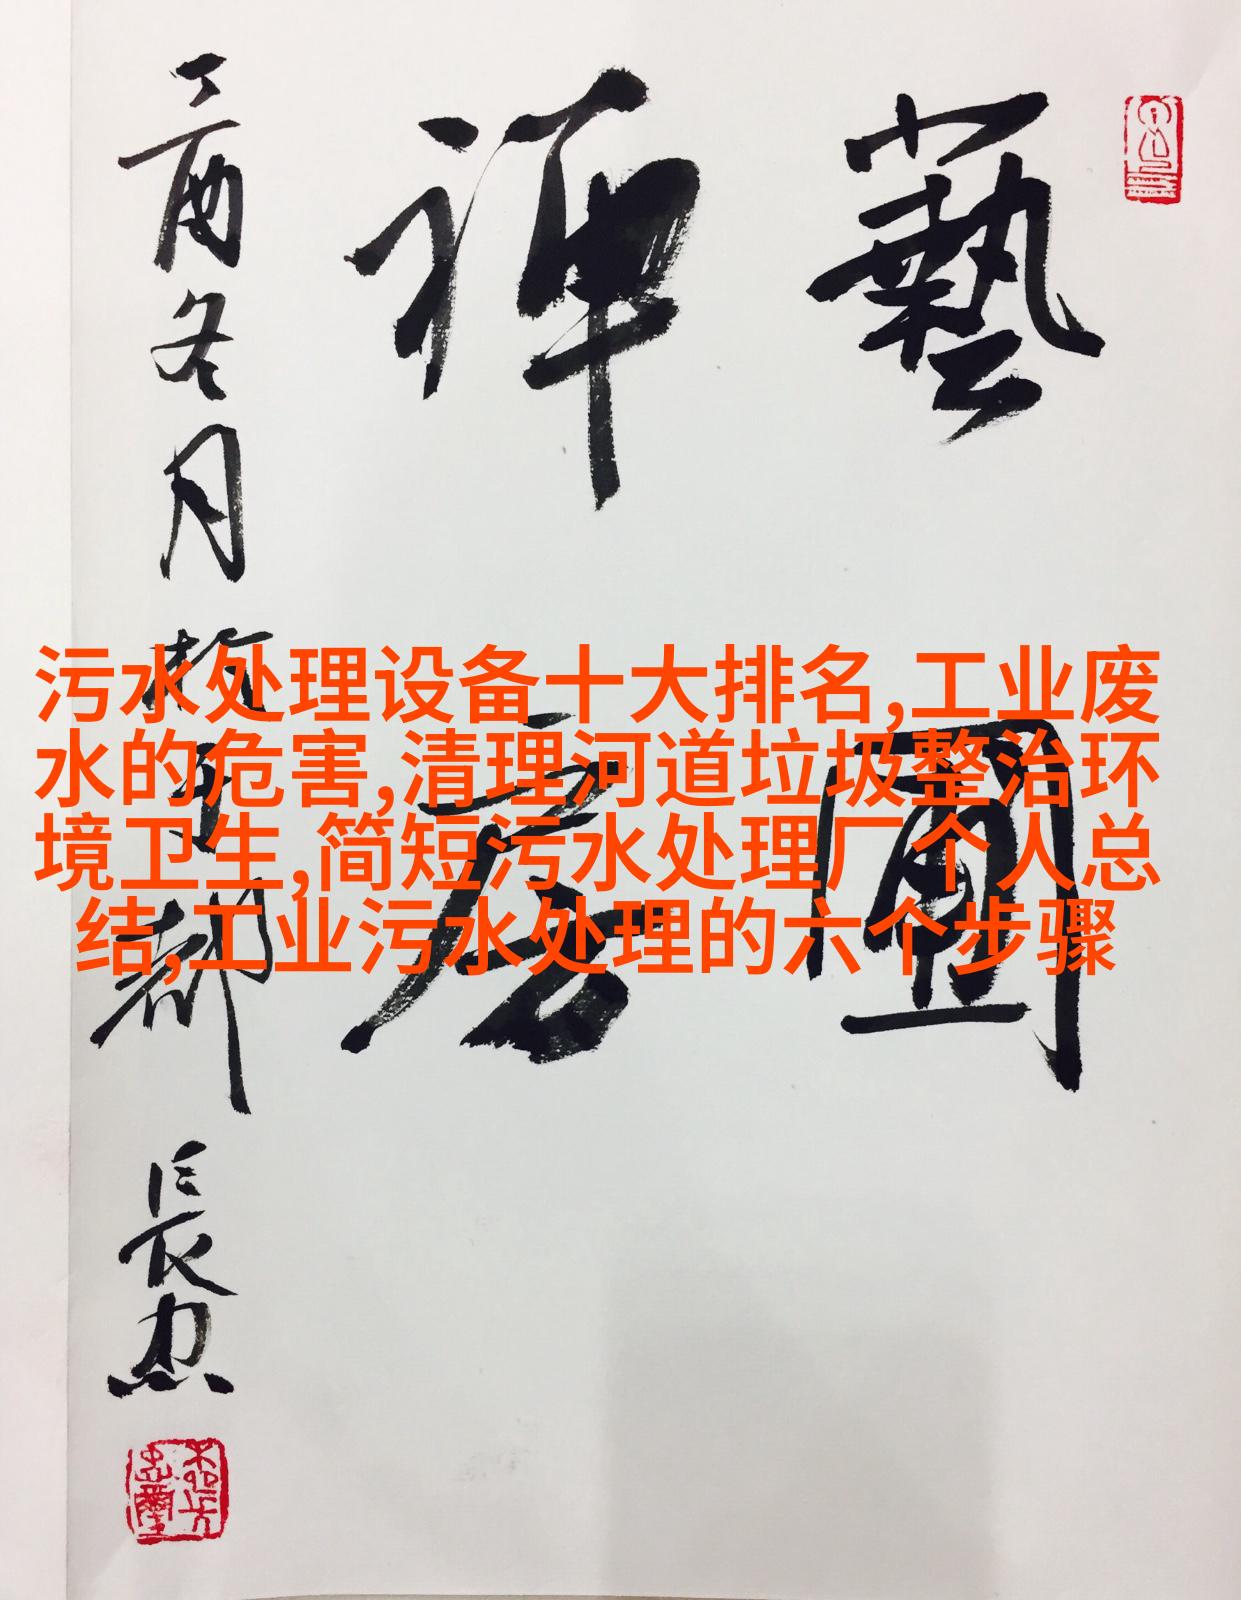 藝圃
禪房
丁酉冬月於都
長忠
污水处理设备十大排名,工业废
水的危害,清理河道垃圾整治环
境卫生,简短污水处理厂个人总
结,工业污水处理的六个步骤